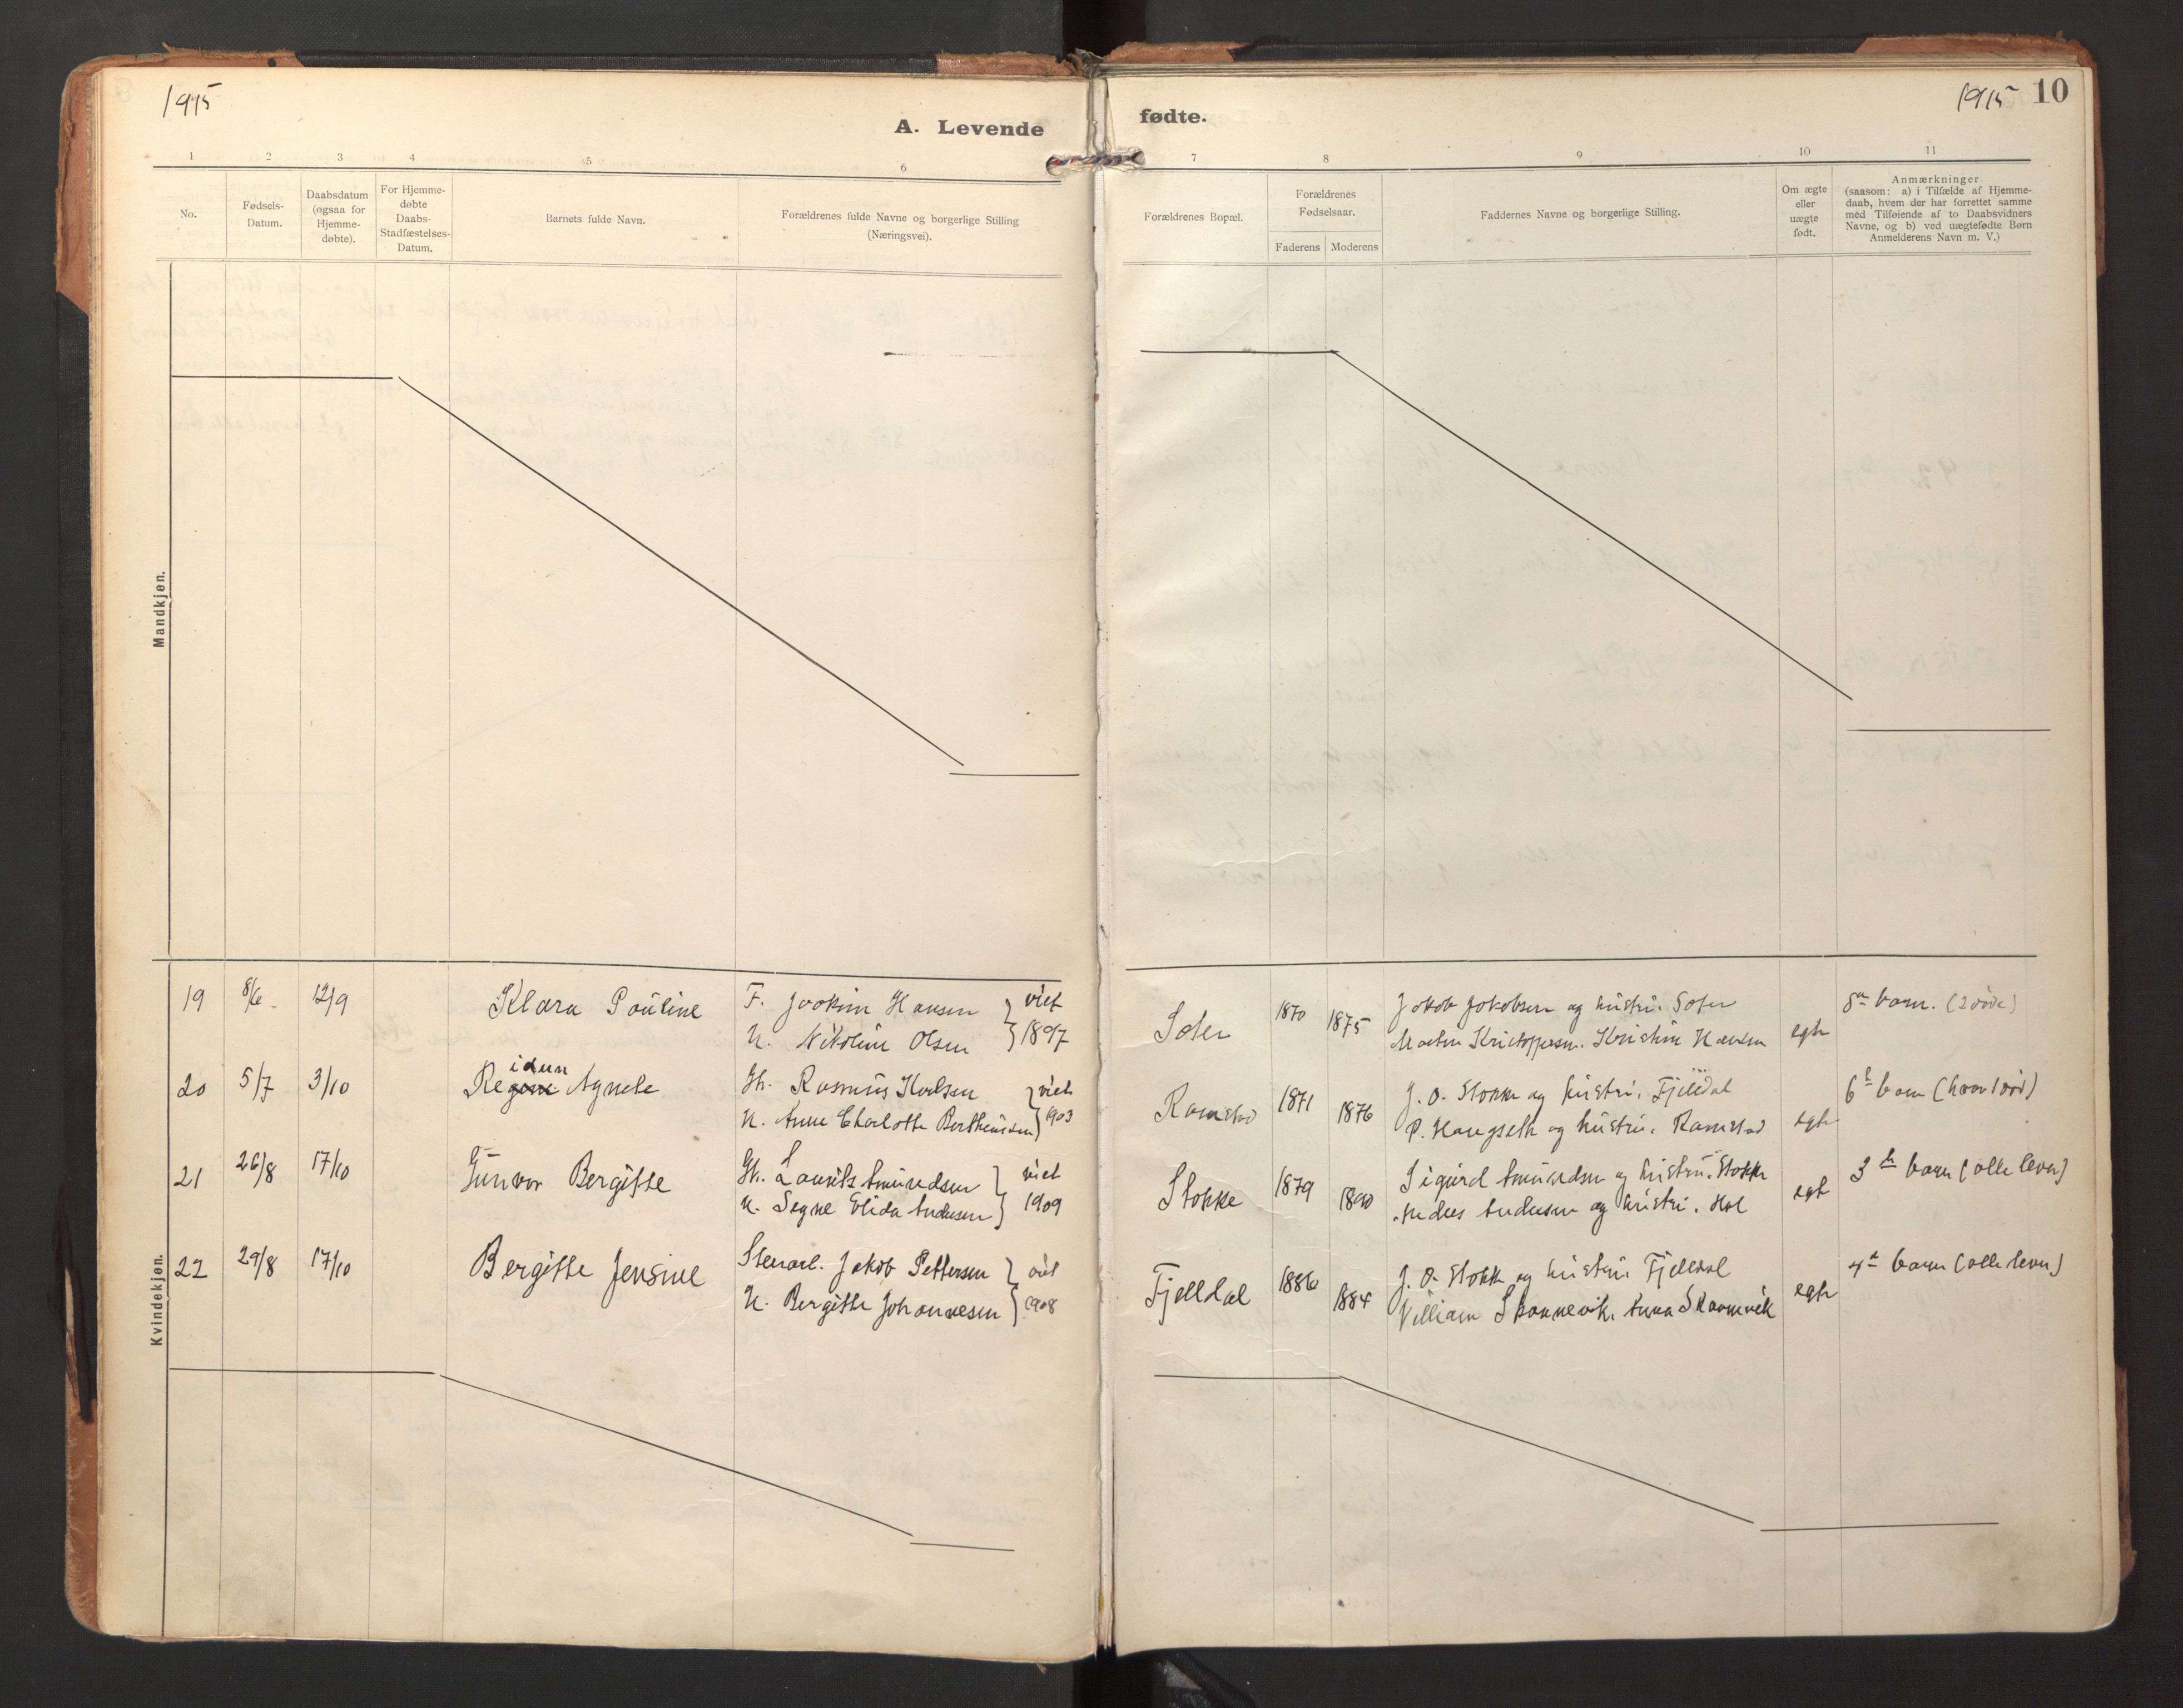 1915
1915 10
A. Levende fødte.
1 2 3 4 5 6 7 8 9 10 11
No.
Fødsels-
Datum.
Daabsdatum
(ogsaa for
Hjemme-
døbte).
For Hjemme-
døbte
Daabs-
Stadfæstelses-
Datum.
Barnets fulde Navn.
Forældrenes fulde Navne og borgerlige Stilling
(Næringsvei).
Forældrenes Bopæl.
Forældrenes
Fødselsaar.
Faderens Moderens
Faddernes Navne og borgerlige Stilling.
Om ægte
eller
uægte
født.
Anmærkninger
(saasom: a) i Tilfælde af Hjemme-
daab, hvem der har forrettet samme
med Tilføiende af to Daabsvidners
Navne, og b) ved uægtefødte Børn
Anmelderens Navn m. V.)
Mandkjøn.
Kvindekjøn.
19 8/6 12/9 Klara Pauline
F. Joakim Hansen } viet
H. Nikoline Olsen } 1897
1870 1875
Jakob Jakobsen og hustru.
Kristine Hansen
egte
8de barn. (2 død)
20 5/7 3/10 Regine Agnete
idun
Gb. Rasmus Karlsen } viet
H. Anne Charlotte Bertheussen } 1903
Ramstad 1871 1876
J. O. Stokke og hustru. Fjelldal
P. Haugseth og hustru. Ramstad
egte
6te barn (hvorav 1 død)
21 26/8 17/10 Gunvor Bergitte
Gb. Laurits Amundsen } viet
H. Segne Elida Andersen } 1909
Stokke 1879 1890
Sigurd Amundsen og hustru. Stokke
Anders Andersen og hustru. Hol
egte
3de barn (alle lever)
22 29/8 17/10 Bergitte Jensine
Stenarb. Jakob Pettersen } viet
H. Bergitte Johannesen } 1908
Fjelldal 1886 1884
J. O. Stokke og hustru Fjelldal
William Skannevik. Anna Skannevik
egte
4de barn (alle lever)